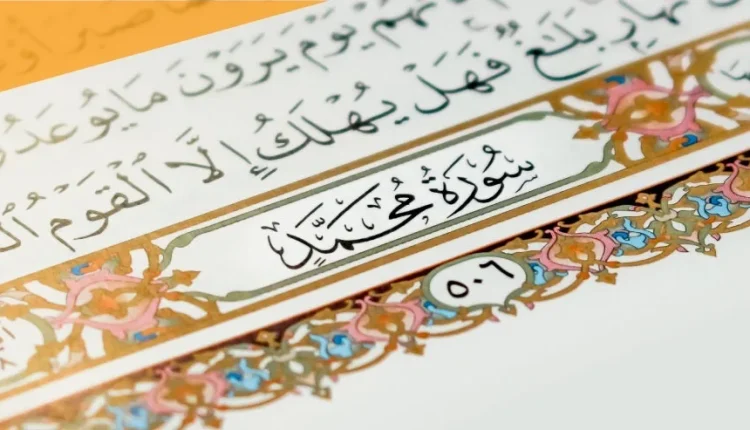 صَبَرَ
يَوْمَ يَرَوْنَ مَا يُوعَدُ
نَهَارٍۭ بَلَٰغٌ فَهَلْ يُهْلَكُ إِلَّا ٱلْقَوْمُ
سُورَةُ مُحَمَّدٍ
٥٠٦